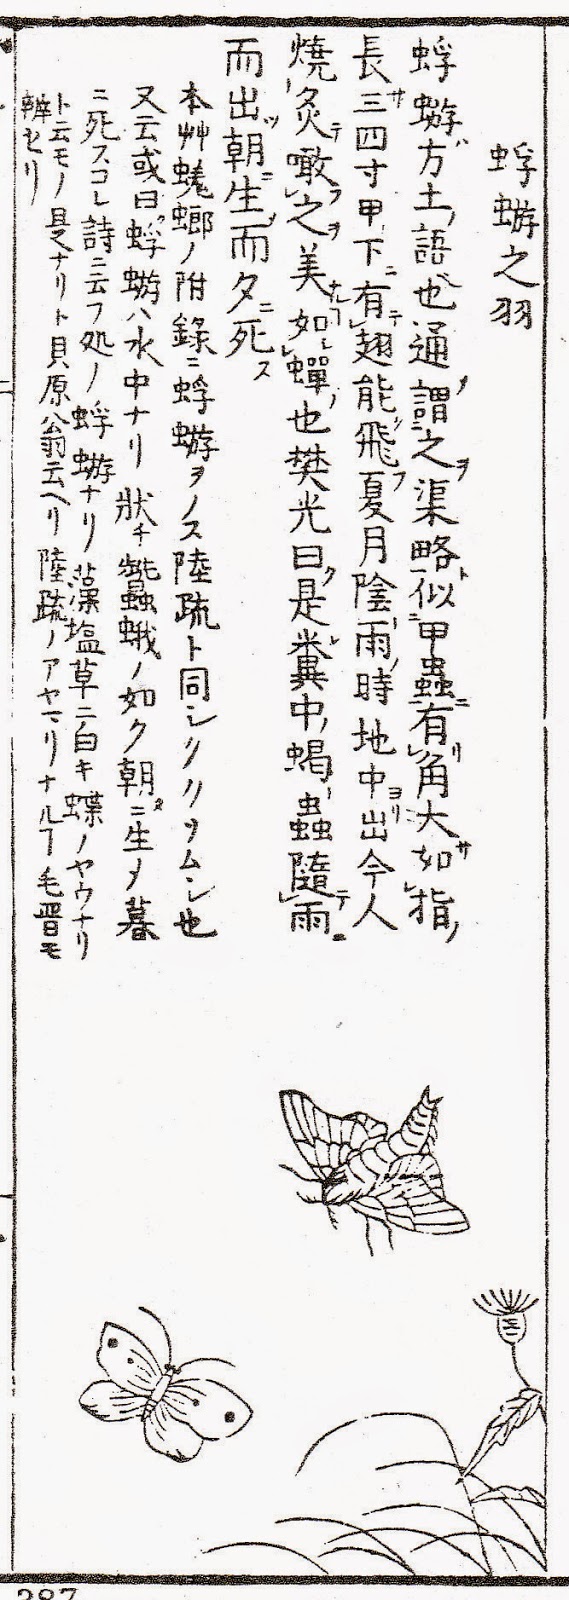 蜉蝣之羽
蜉蝣方土語也通謂之渠略似甲蟲有角大如指
長三四寸甲下有翅能飛夏月陰雨時地中出今人
燒炙噉之美如蟬也樊光曰是糞中蝎蟲隨雨
而出朝生而夕死
本艸蜣螂ノ附錄ニ蜉蝣ヲノス陸疏ト同シ
又云或曰蜉蝣ハ水中ナリ狀チ蠶蛾ノ如ク朝ニ生メ暮
ニ死スコレ詩ニ云フ処ノ蜉蝣ナリ藻塩草ニ白キ蝶ノヤウナリ
ト云モノ是ナリト貝原翁云ヘリ陸疏ノアヤマリナルヿ毛晉モ
辨セリ
387